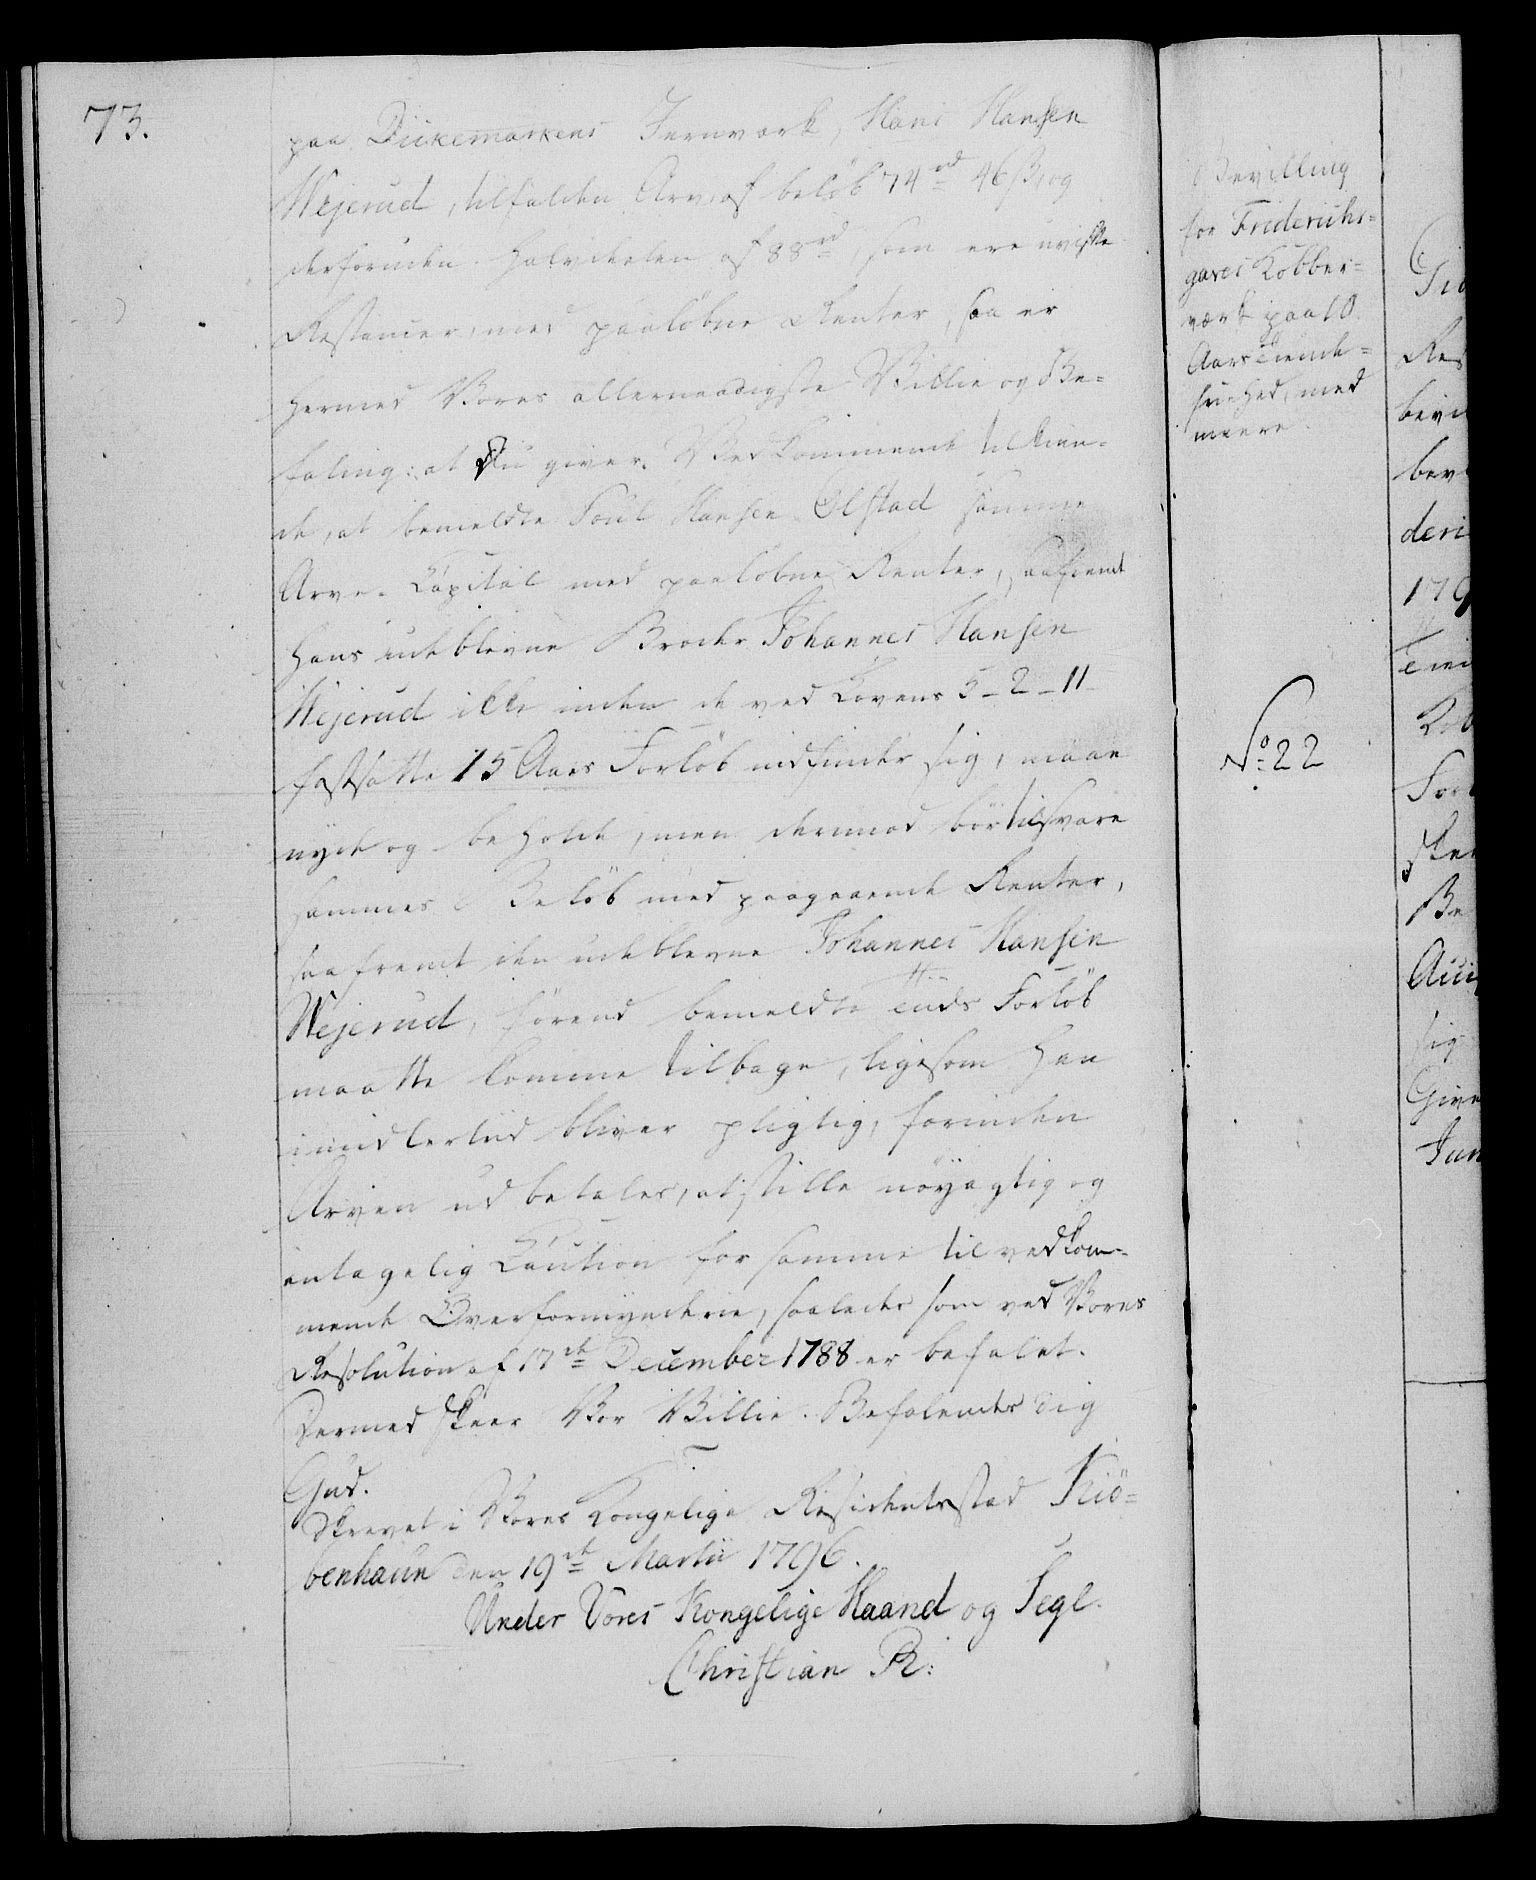 73.
paa Dikemarkens Jernværk, Hans Hansen
Wejerud, tilfalden Arv, af beløb 74 rd 46 ß, og
desforuden Halvdeelen af 88 rd, som ere uvisse
Restancer, med paaløbne Renter, saa er
hermed Vores allernaadigste Villie og Be-
faling: at Du giver Vedkommende tilkien-
de, at bemeldte Poul Hansen Ølstad samme
Arve-Capital med paaløbne Renter, saafremt
hans udeblevne Broder Johannes Hansen
Wejerud ikke inden de ved Lovens 5-2-11
fastsatte 15 Aars Forløb indfinder sig, maae
nyde og beholde, men derimod bør tilsvare
sammes Beløb med paagaaende Renter,
saafremt den udeblevne Johannes Hansen
Wejerud, førend bemeldte Tiids Forløb
maatte komme tilbage, ligesom han
imidlertid bliver pligtig, forinden
Arven udbetales, at stille nøyagtig og
antagelig Caution for samme til vedkom-
mende Overformynderie, saaledes som ved Vores
Resolution af 17de December 1788 er befalet.
Dermed skeer Vor Villie. Befalendes Dig
Gud.
Skrevet i Vores Kongelige Residentsstad Kiö-
benhaun den 19de Martii 1796.
Under Vores Kongelige Haand og Segl.
Christian R:
Bevilling
for Friderichs-
gaves Kobber-
værk paa 10
Aars Tiende-
friehed, med
meere.
No. 22
bev
deri
179
Be
sig
Give
Jun